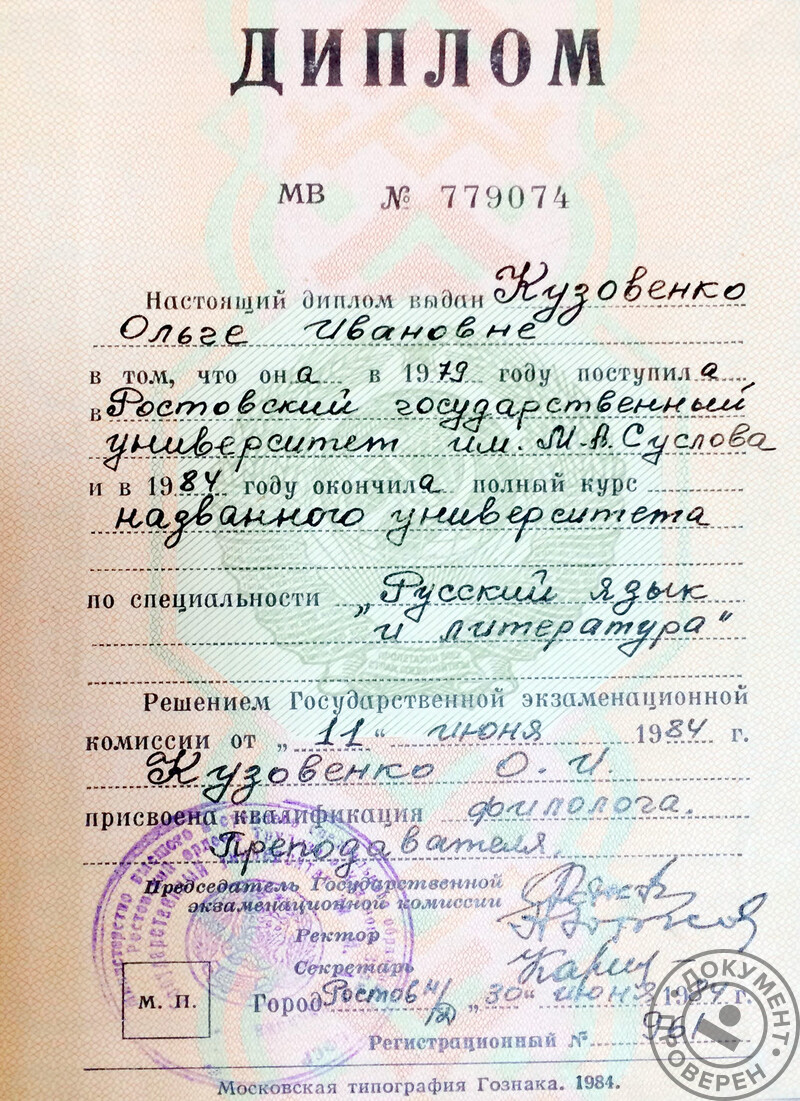 ДИПЛОМ
МВ № 779074
Настоящий диплом выдан Кузовенко
Ольге Ивановне
в том, что она в 1979 году поступила
в Ростовский государственный
университет им. М.А. Суслова
и в 1984 году окончила полный курс
названного университета
по специальности „Русский язык
и литература"
Решением Государственной экзаменационной
комиссии от „11" июня 1984 г.
Кузовенко О. И.
присвоена квалификация филолога.
Преподавателя.
Председатель Государственной
экзаменационной комиссии
Ректор
Секретарь
М. П.
Город Ростов н/Д „30" июня 1984 г.
Регистрационный № 961
Московская типография Гознака. 1984.
ДОКУМЕНТ ПРОВЕРЕН